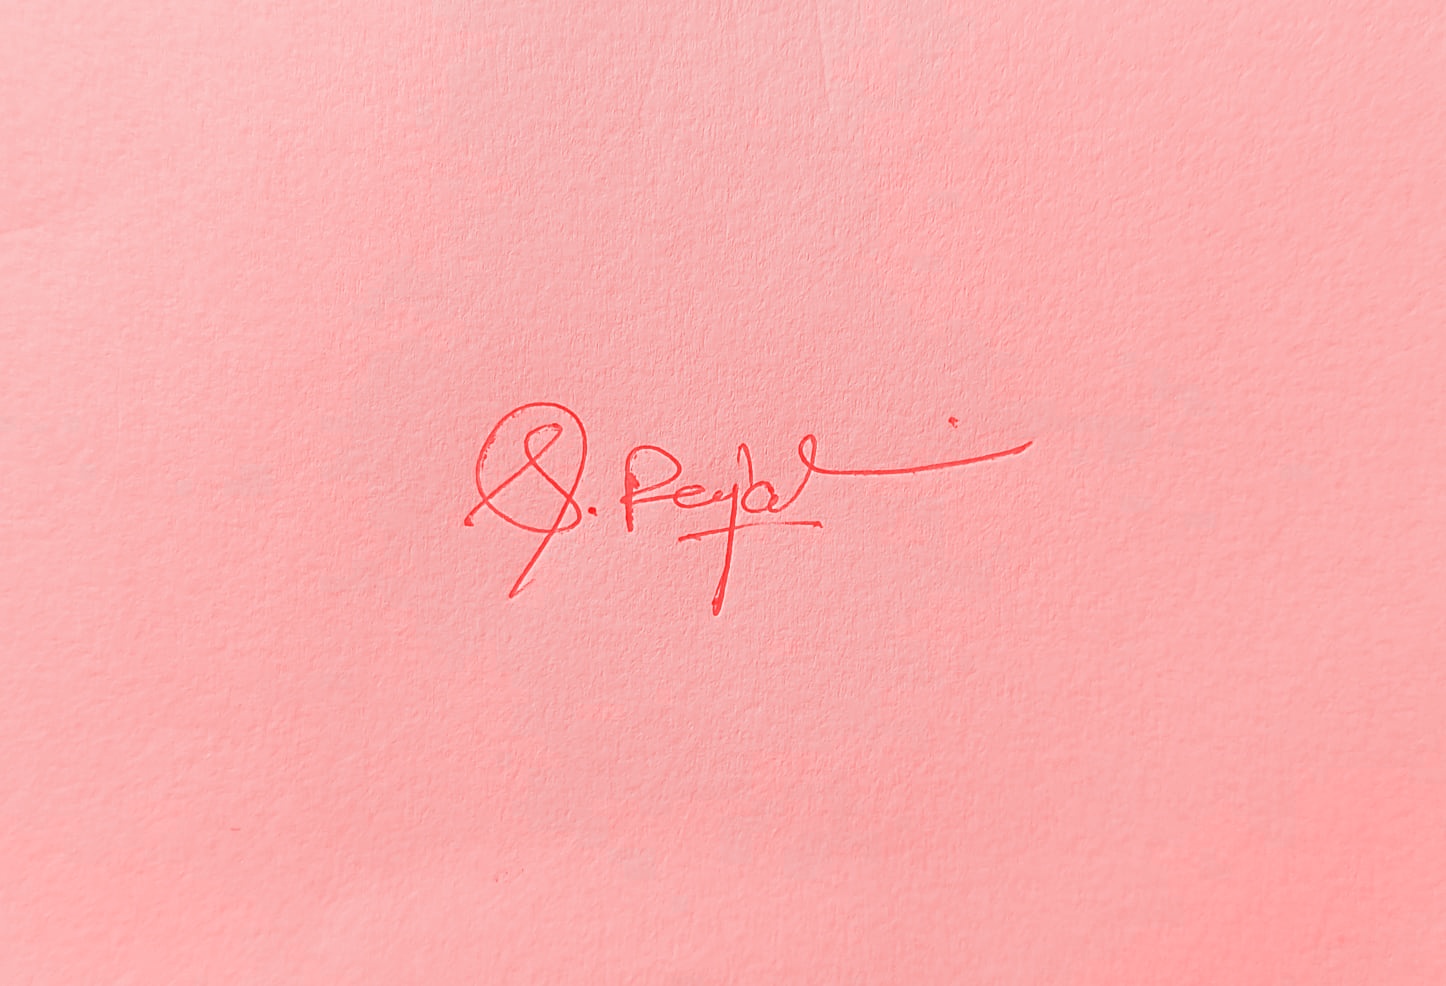 S. Reyal